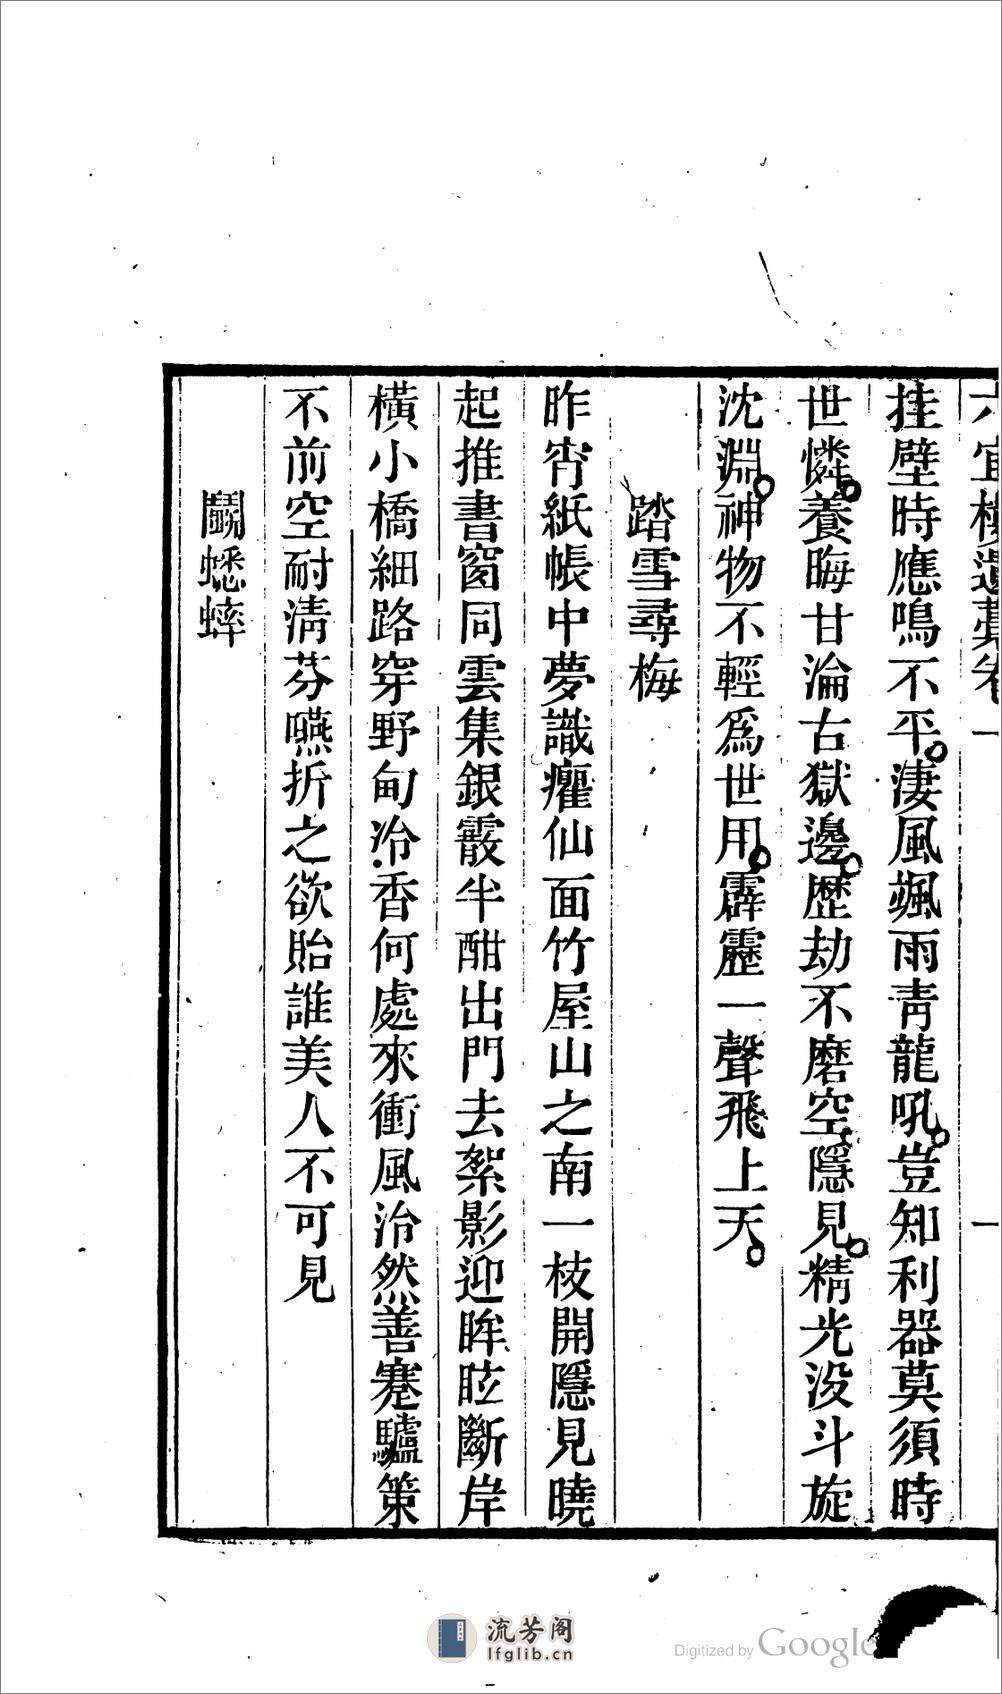 六宜樓遺藁卷一 一
挂壁時應鳴不平淒風颯雨青龍吼豈知利器莫須時
世憐養晦甘淪古獄邊歷劫不磨空隱見精光没斗旋
沈淵神物不輕爲世用霹靂一聲飛上天
踏雪尋梅
昨宵紙帳中夢識癯仙面竹屋山之南一枝開隱見曉
起推書窗同雲集銀霰半酣出門去絮影迎眸眩斷岸
橫小橋細路穿野甸冶香何處來衝風冶然善蹇驢策
不前空耐清芬嚥折之欲貽誰美人不可見
鬭蟋蟀
流芳阁
lfglib.cn
Digitized by Google